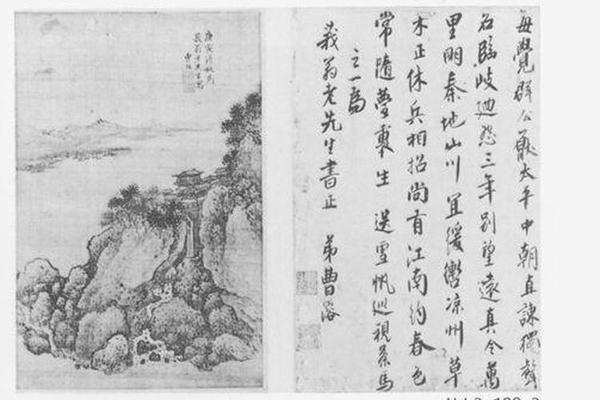 每覺群公歌太平中朝直諫獨
名臨岐迴怨三年別望遠真令萬
里明秦地山川宜緩轡涼州草
木正休兵相招尚有江南約春色
常隨夢裏生 送雪帆巡視茶馬
之一為
莪翁老先生書正 弟曹溶
庚寅
莪翁